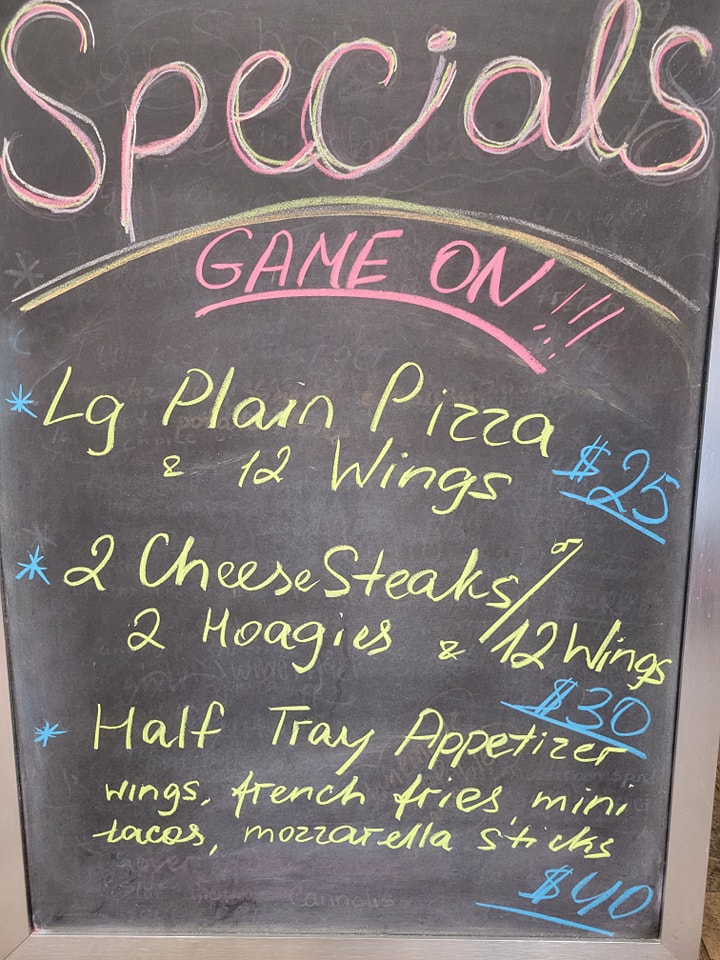 Specials
GAME ON!!!
* Lg Plain Pizza
& 12 Wings $25
* 2 CheeseSteaks/ or
2 Hoagies & 12 Wings
$30
* Half Tray Appetizer
wings, french fries, mini
tacos, mozzarella sticks
$40
Cannolis